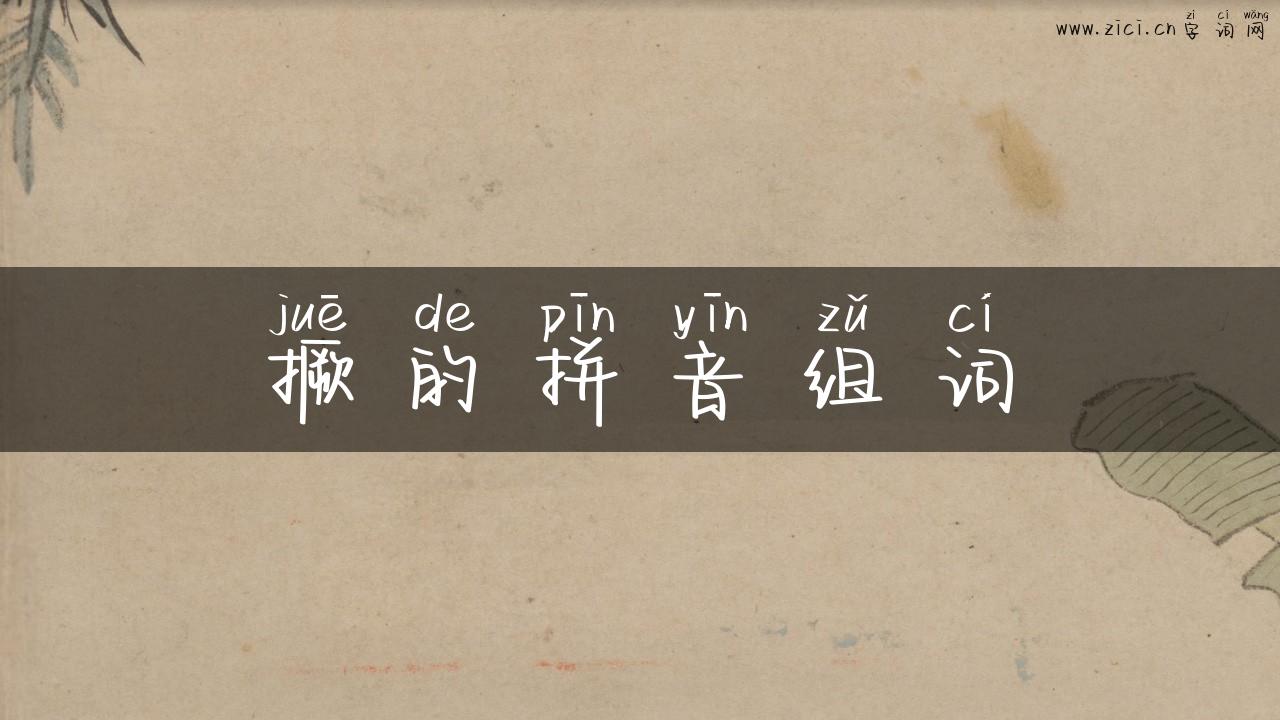 zì cí wǎng
www.zici.cn 字词网
juē de pīn yīn zǔ cí
撅的拼音组词